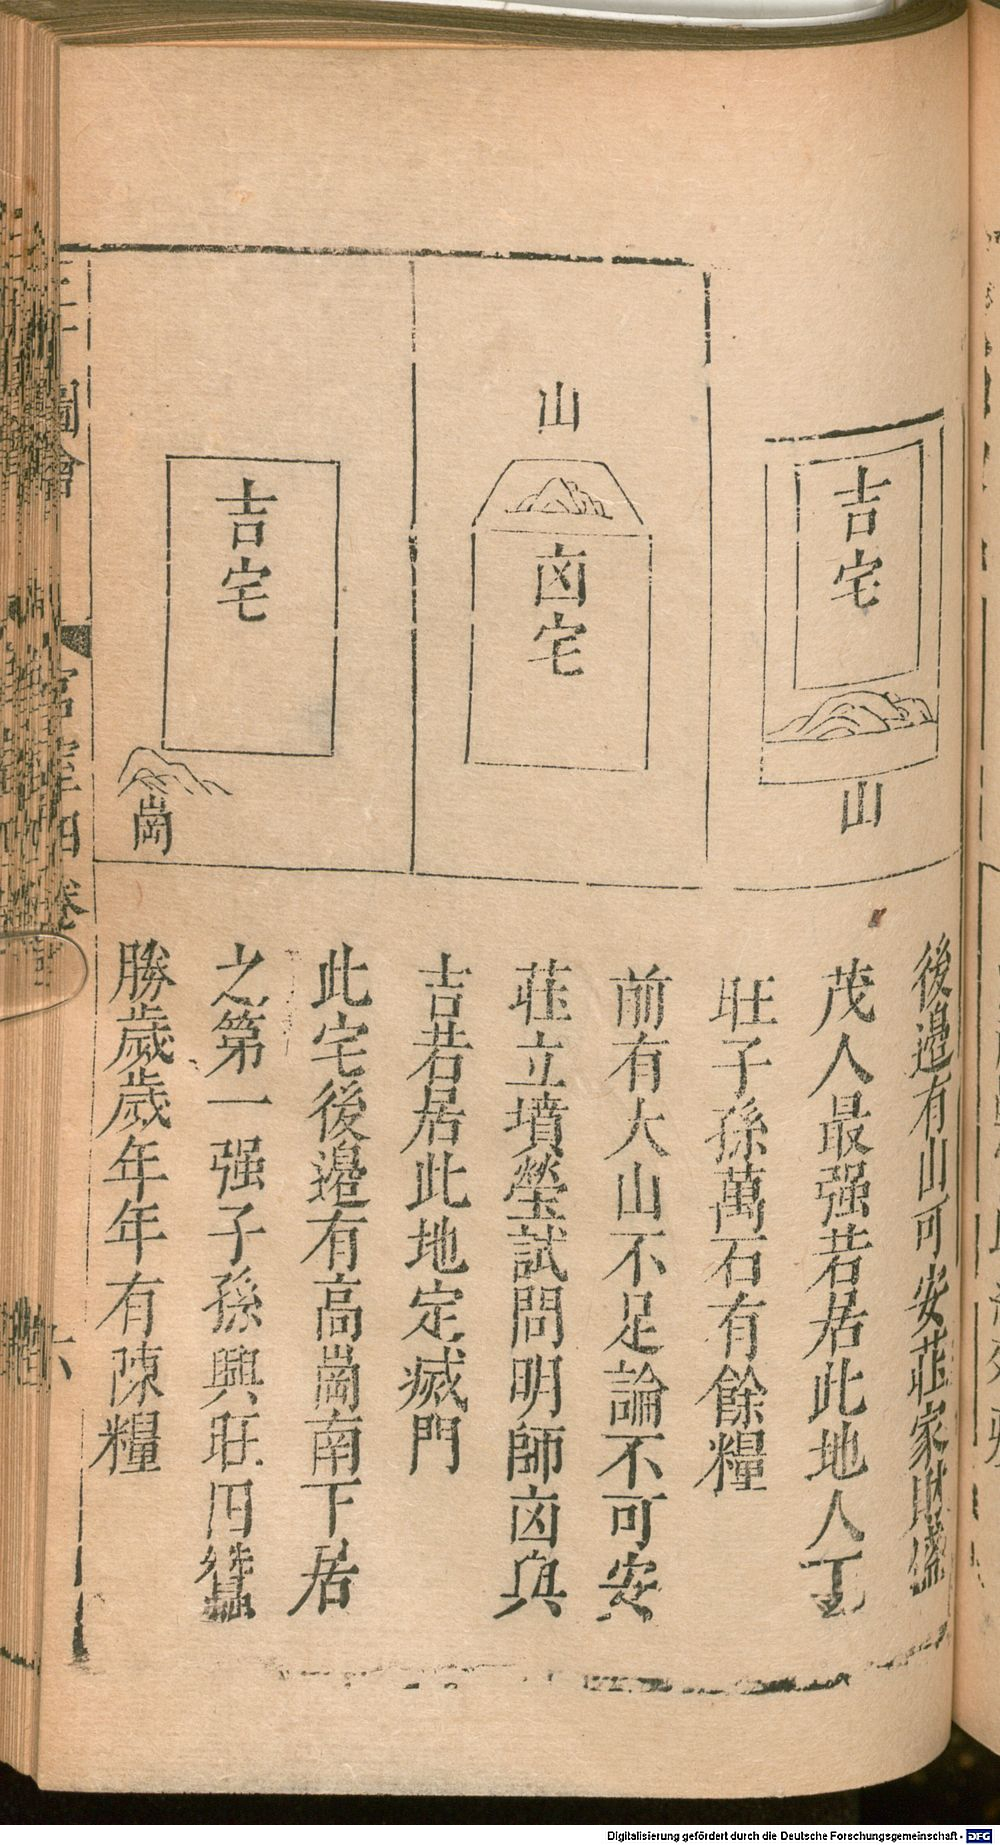 吉宅
山
山
凶宅
吉宅
崗
後邉有山可安莊家財盛
茂人最强若居此地人丁
旺子孫萬石有餘糧
前有大山不足論不可安
莊立墳塋試問明師凶與
吉若居此地定㓕門
此宅後邉有高崗南下居
之第一强子孫興旺田蠶
勝歲歲年年有陳糧
圖會
宫室四卷
六
Digitalisierung gefördert durch die Deutsche Forschungsgemeinschaft - DFG